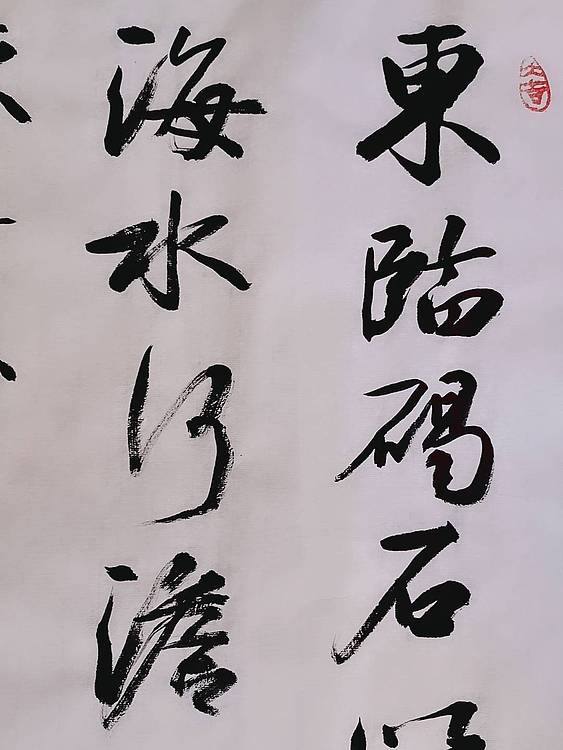 東臨碣石以
海水何澹